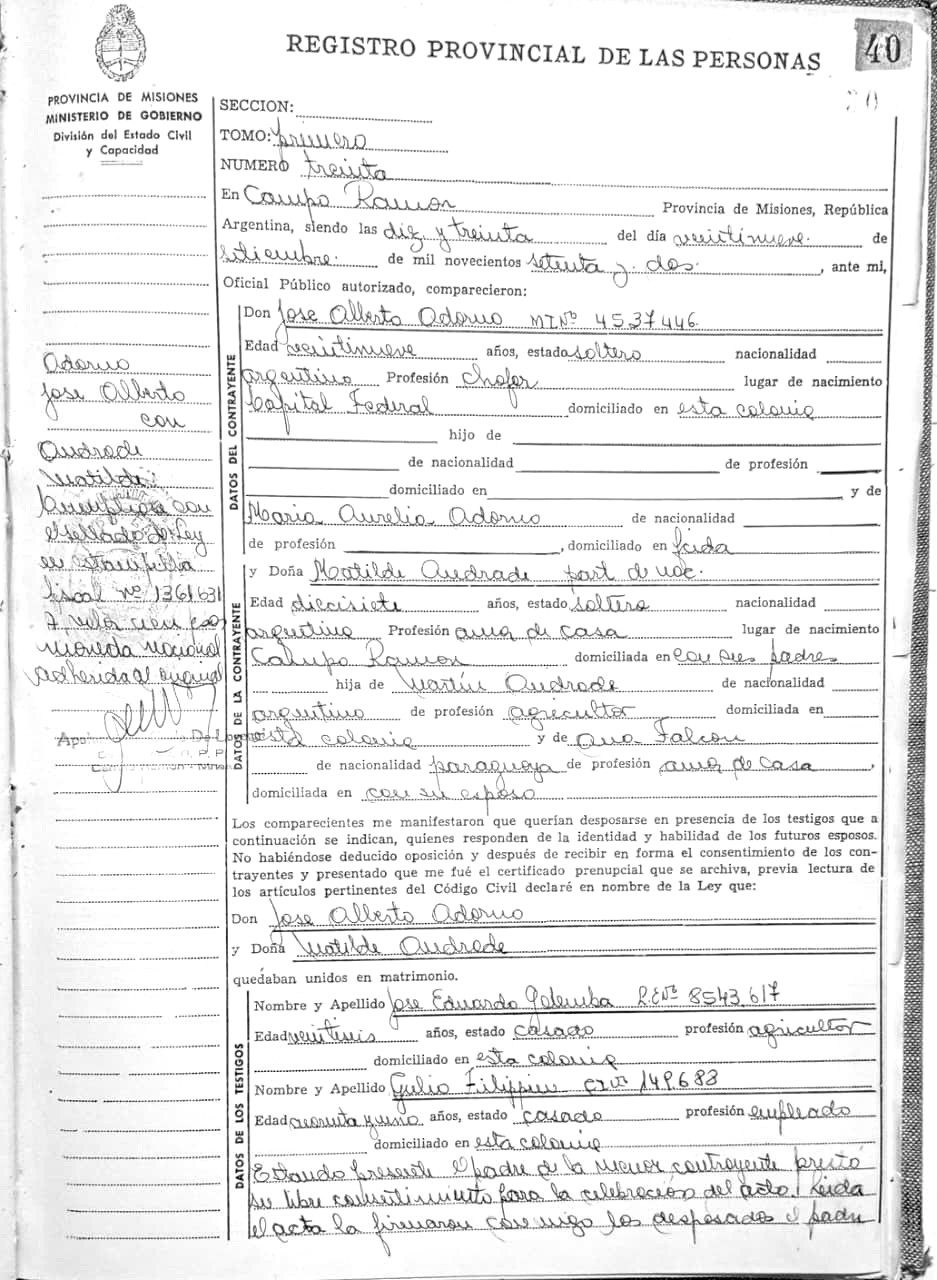 REGISTRO PROVINCIAL DE LAS PERSONAS
40
PROVINCIA DE MISIONES
MINISTERIO DE GOBIERNO
División del Estado Civil
y Capacidad
SECCION:
TOMO: primero
NUMERO treinta
En Campo Ramon Provincia de Misiones, República
Argentina, siendo las diez y treinta del día veintinueve de
setiembre de mil novecientos setenta y dos, ante mi,
Oficial Público autorizado, comparecieron:
DATOS DEL CONTRAYENTE
Don Jose Alberto Adorno MINº 4537446
Edad veintinueve años, estado soltero nacionalidad
argentino Profesión chofer lugar de nacimiento
Capital Federal domiciliado en esta colonia
hijo de
de nacionalidad de profesión
domiciliado en y de
Maria Aurelia Adorno de nacionalidad
de profesión , domiciliado en
Adorno
Jose Alberto
con
Andrade
Matilde
con
el sellado de Ley
en estampilla
fiscal nº 1361631
moneda nacional
adherida al original
DATOS DE LA CONTRAYENTE
y Doña Matilde Andrade part de nac.
Edad diecisiete años, estado soltera nacionalidad
argentina Profesión ama de casa lugar de nacimiento
Campo Ramon domiciliada en con sus padres
hija de Martin Andrade de nacionalidad
argentino de profesión agricultor domiciliada en
esta colonia y de Ana Falcon
de nacionalidad paraguaya de profesión ama de casa,
domiciliada en con su esposo
Los comparecientes me manifestaron que querían desposarse en presencia de los testigos que a
continuación se indican, quienes responden de la identidad y habilidad de los futuros esposos.
No habiéndose deducido oposición y después de recibir en forma el consentimiento de los con-
trayentes y presentado que me fué el certificado prenupcial que se archiva, previa lectura de
los artículos pertinentes del Código Civil declaré en nombre de la Ley que:
Don Jose Alberto Adorno
y Doña Matilde Andrade
quedaban unidos en matrimonio.
DATOS DE LOS TESTIGOS
Nombre y Apellido Jose Eduardo Golemba 8543617
Edad años, estado casado profesión agricultor
domiciliado en esta colonia
Nombre y Apellido Julio Filippin 149683
Edad años, estado casado profesión empleado
domiciliado en esta colonia
Estando presente el padre de la menor contrayente prestó
su libre consentimiento para la celebracion del acto. Leida
el acta la firmaron con migo los desposados el padre